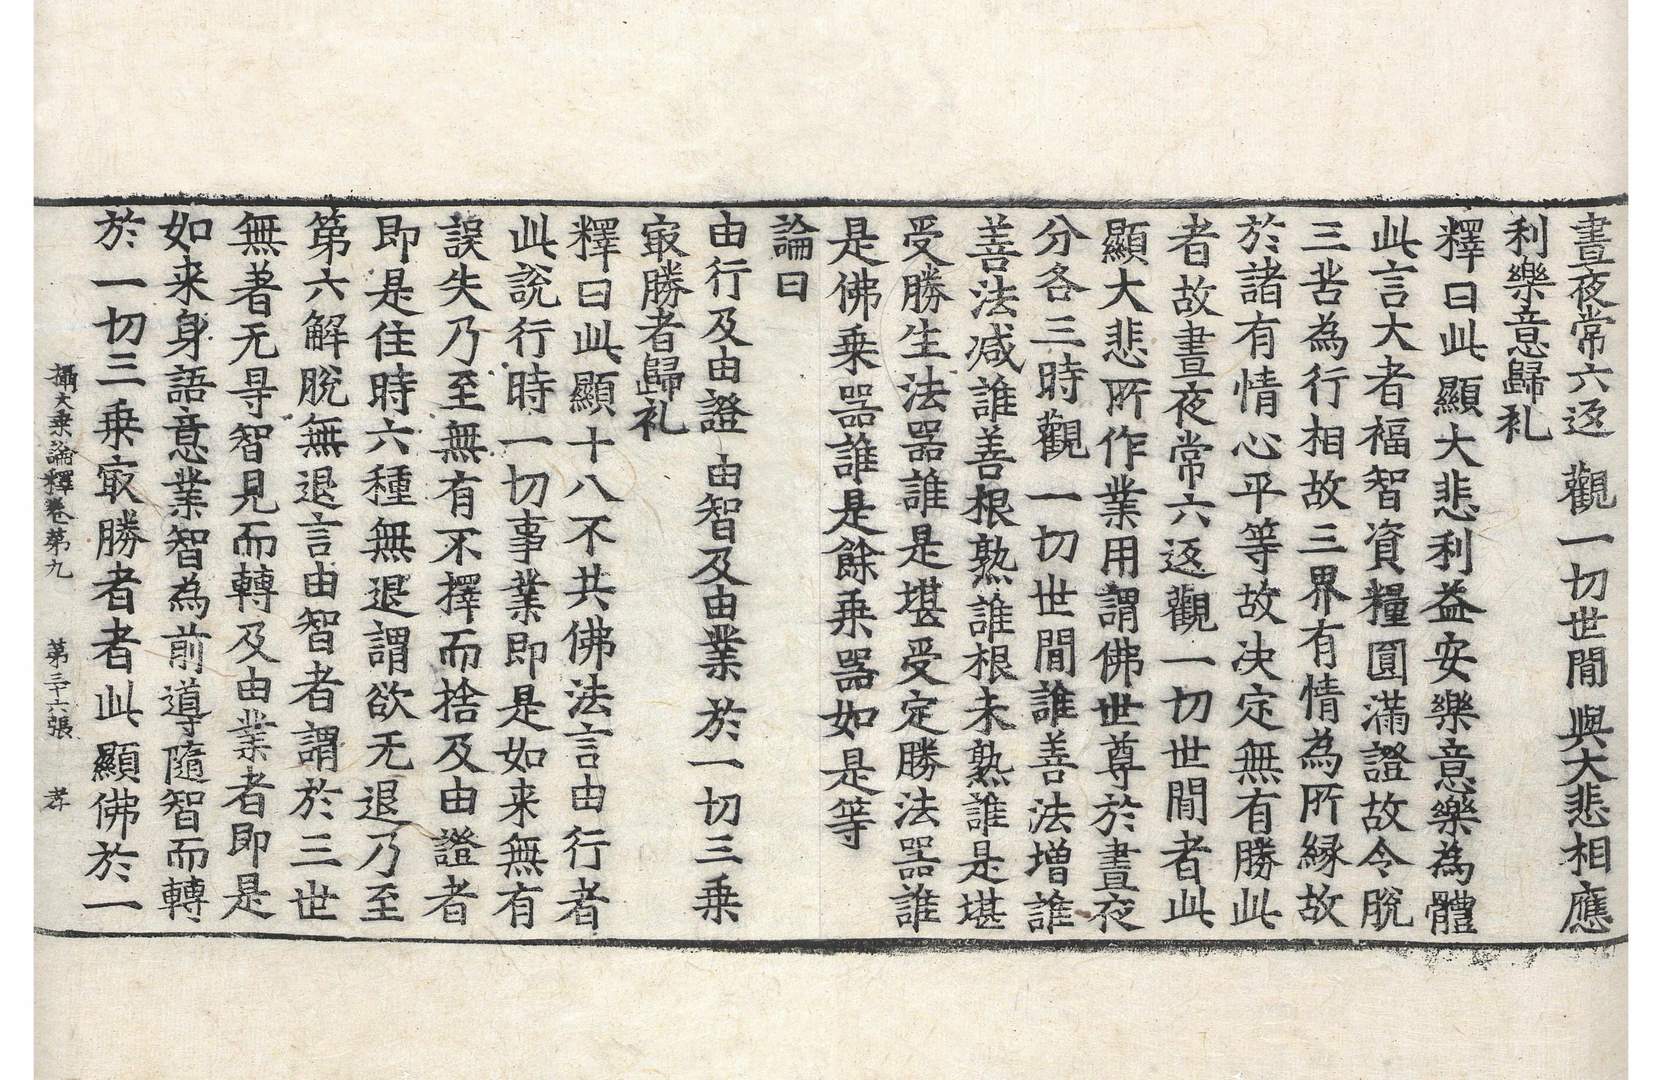 晝夜常六返 觀一切世閒 與大悲相應
利樂意歸礼
釋曰此顯大悲利益安樂意樂為體
此言大者福智資糧圓滿證故令脫
三苦為行相故三界有情為所緣故
於諸有情心平等故決定無有勝此
者故晝夜常六返觀一切世閒者此
顯大悲所作業用謂佛世尊於晝夜
分各三時觀一切世閒誰善法增誰
善法減誰善根熟誰根未熟誰是堪
受勝生法器誰是堪受定勝法器誰
是佛乗器誰是餘乗器如是等
論曰
由行及由證 由智及由業 於一切三乗
㝡勝者歸礼
釋曰此顯十八不共佛法言由行者
此說行時一切事業即是如来無有
誤失乃至無有不擇而捨及由證者
即是住時六種無退謂欲无退乃至
第六解脫無退言由智者謂於三世
無著无㝵智見而轉及由業者即是
如来身語意業智為前導隨智而轉
於一切三乗㝡勝者者此顯佛於一
攝大乗論釋卷第九 第三十六張 孝